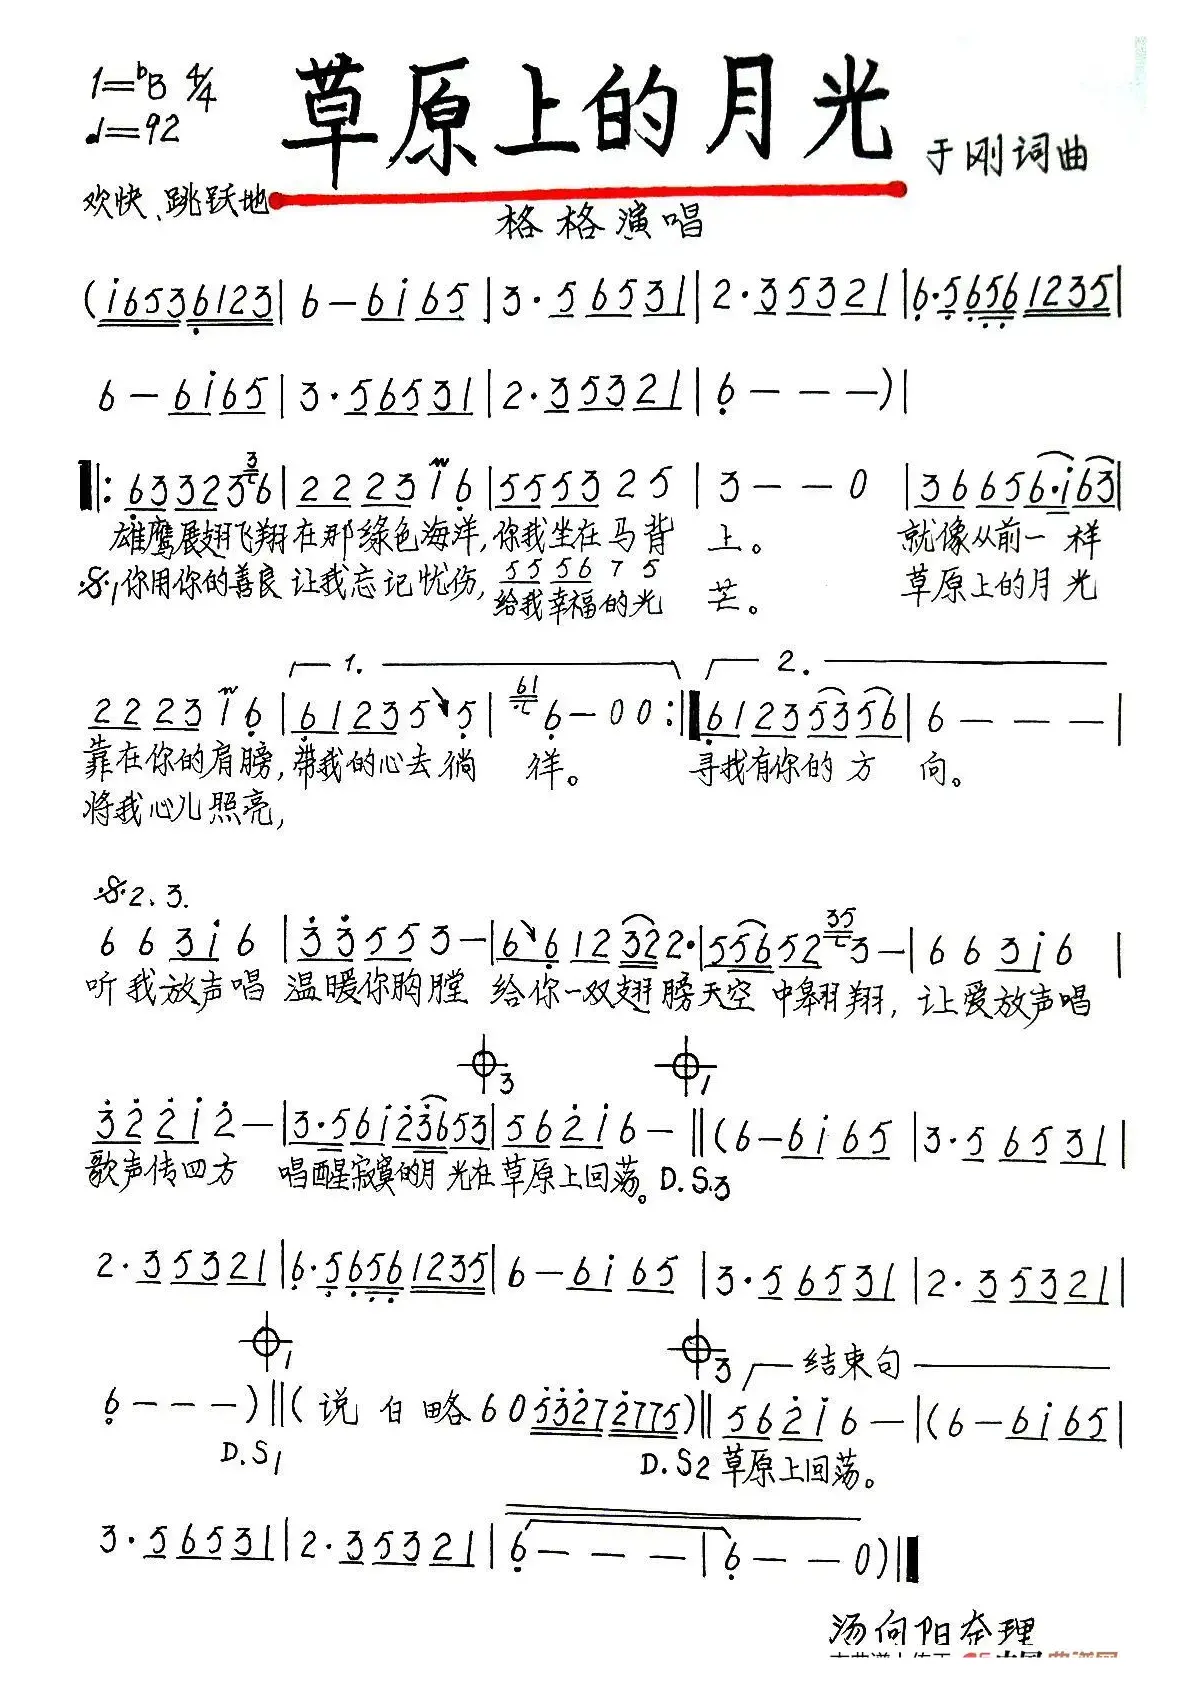 1=ᵇB 4/4
草原上的月光
♩=92
于刚词曲
欢快、跳跃地
格格演唱
(i6536123|6-6i65|3·56531|2·35321|6·56561235|
6-6i65|3·56531|2·35321|6---)|
‖:633236|2223i6|555325|3--0|36656·i63|
雄鹰展翅飞翔在那绿色海洋,你我坐在马背 上。 就像从前一样
𝄋1你用你的善良 让我忘记忧伤, 555675
给我幸福的光 芒。 草原上的月光
1. 2.
2223i6|612355|6-00:‖61235356|6---|
靠在你的肩膀,带我的心去徜 徉。 寻我有你的方 向。
将我心儿照亮,
𝄋2、3.
663i6|33553-|6612322·|556523-|663i6|
听我放声唱 温暖你胸膛 给你一双翅膀天空中翱翔, 让爱放声唱
𝄌3 𝄌1
322i2-|3·56i23653|562i6-‖(6-6i65|3·56531|
歌声传四方 唱醒寂寞的月光在草原上回荡。D.S.3
2·35321|6·56561235|6-6i65|3·56531|2·35321|
𝄌1 𝄌3 结束句
6---)‖(说白略6053272775)‖562i6-|(6-6i65|
D.S1 D.S2 草原上回荡。
3·56531|2·35321|6---|6--0)‖
汤向阳奎理